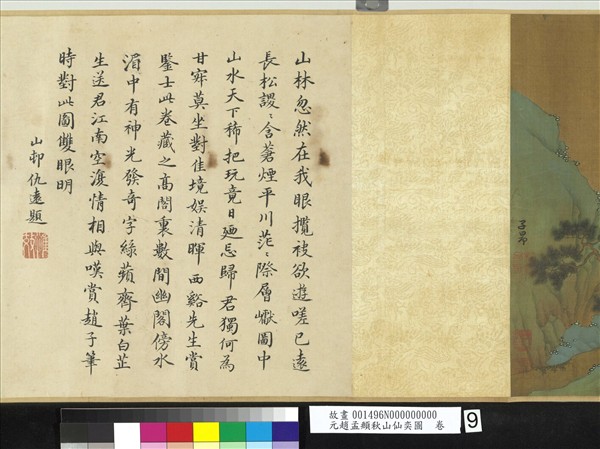 子昂
山林忽然在我眼攬被欲遊嗟已遠
長松謖〻含蒼煙平川茫〻際層巘圖中
山水天下稀把玩竟日廼忘歸君獨何為
甘寂莫坐對佳境娛清暉西谿先生賞
鑒士此卷藏之高閣裏數間幽閣傍水
湄中有神光發奇字綠蘋齊葉白芷
生送君江南空復情相與嘆賞趙子筆
時對此圖雙眼明
山邨仇遠題
故畫 001496N000000000
元趙孟頫秋山仙奕圖 卷
9